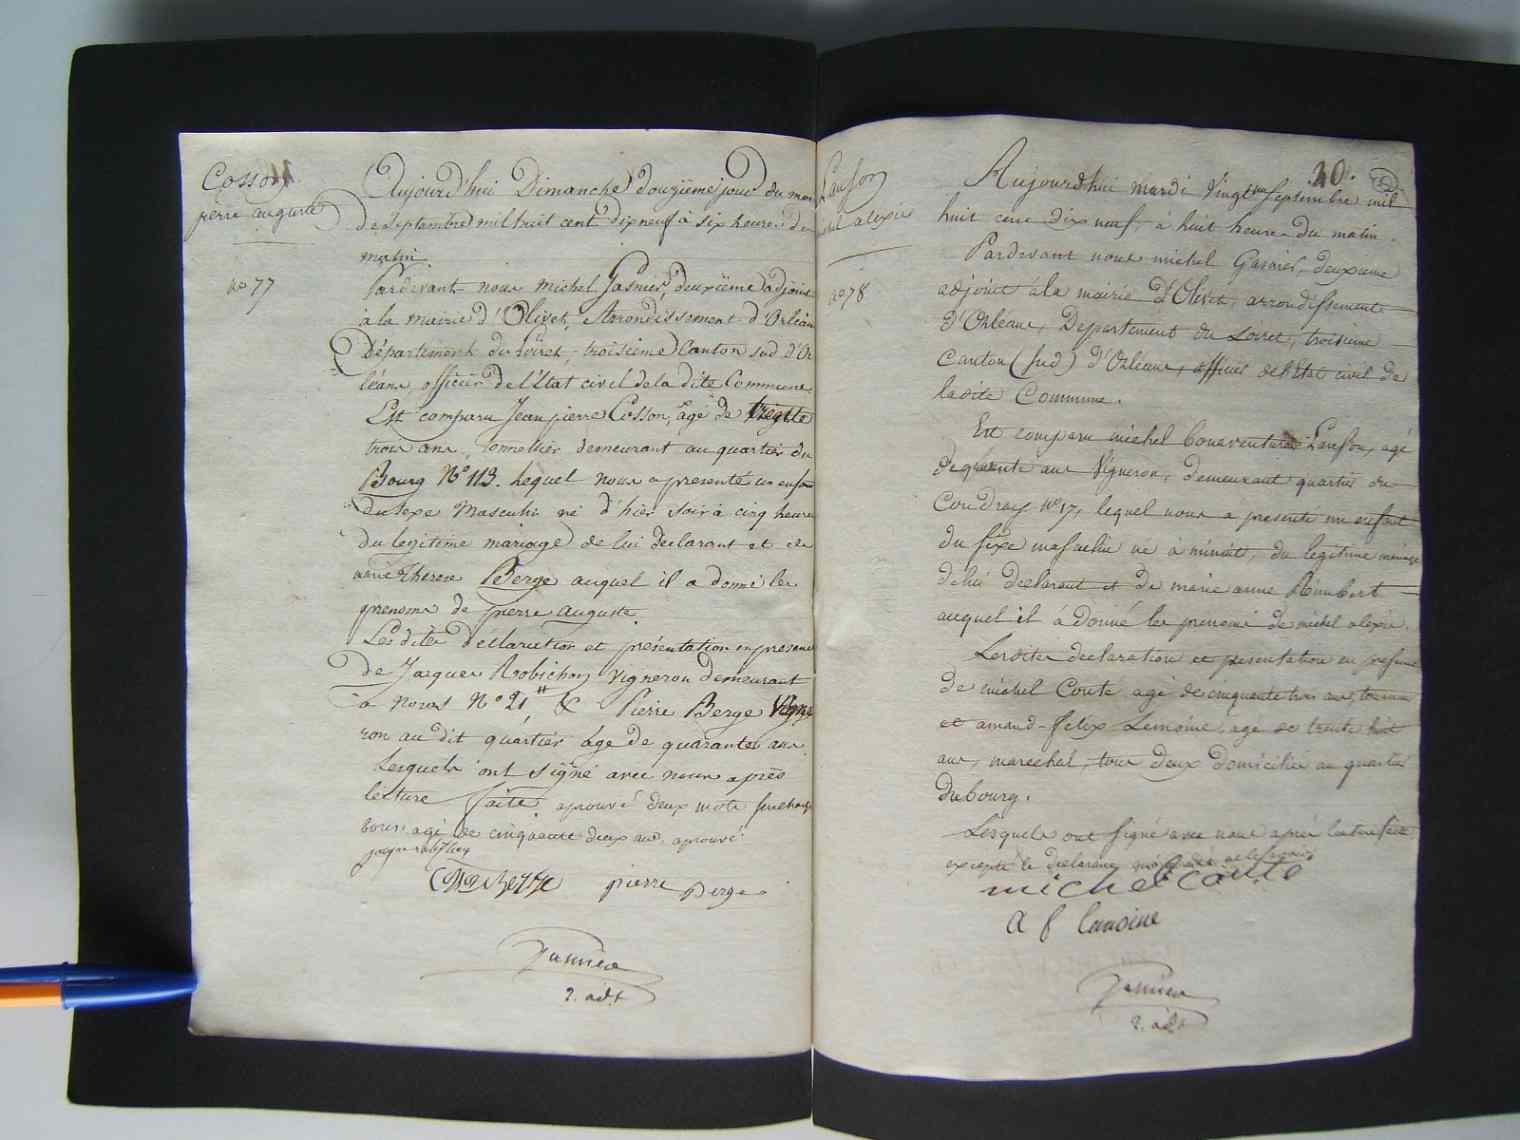 Cosson
pierre auguste
no 77
Aujourd'hui Dimanche douzième jour du mois
de septembre mil huit cent dix neuf à six heures du
matin
Pardevant nous Michel Gasnier, deuxième adjoint
à la mairie d'Olivet, Arrondissement d'Orléans
Département du Loiret, troisième Canton sud d'Or
léans, officier de l'état civil de la dite Commune
Est comparu Jean pierre Cosson, agé de trente
trois ans, tonnellier demeurant au quartier du
Bourg No 113. lequel nous a presenté un enfant
du sexe Masculin né d'hier soir à cinq heures
du legitime mariage de lui declarant et de
marie Therese Berge auquel il a donné les
prenoms de pierre auguste.
Les dites declaration et présentation en presence
de Jacques Robichon vigneron demeurant
à No 21 & Pierre Berge vigne
ron au dit quartier age de quarante ans
Lesquels ont signé avec nous après
lecture faite, aprouvé deux mots surchargé
agé de cinquante deux ans, aprouvé
pierre Berge
Gasnier
2. adt
20.
Lanson
michel alexis
no 78
Aujourdhui mardi Vingt un septembre mil
huit cent dix neuf, à huit heures du matin.
Pardevant nous michel Gasnier, deuxieme
adjoint à la mairie d'Olivet, arrondissement
d'Orléans, Departement du Loiret, troisieme
Canton (sud) d'Orleans, officier de l'état civil de
ladite Commune.
Est comparu michel bonaventure Lanson, agé
de quarente ans Vigneron, demeurant quartier du
Coudray no 17, lequel nous a presenté un enfant
du sexe masculin né à minuit, du legitime mariage
de lui declarant et de marie anne Rimbert
auquel il a donné les prenoms de michel alexis.
Lesdites declaration et presentation en presence
de michel Couté agé de cinquante trois ans,
et amand-felix Lemoine, agé de trente huit
ans, marechal, tous deux domiciliés au quartier
du bourg.
Lesquels ont signé avec nous après lecture faite
excepté le declarant
michel couté
a f lemoine
Gasnier
2. adt